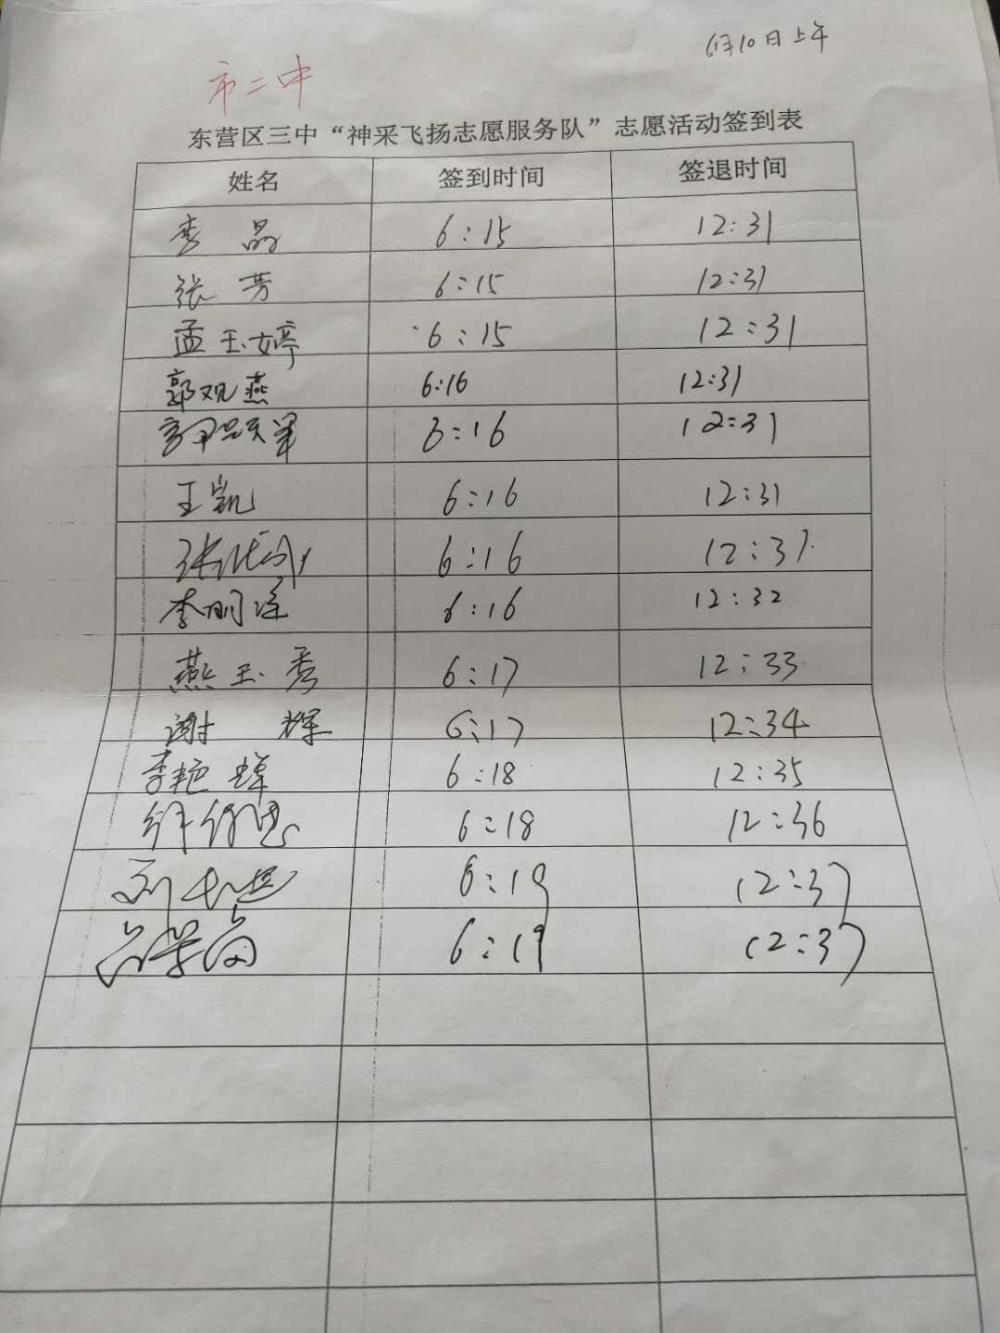 6月10日上午
市二中
东营区三中“神采飞扬志愿服务队”志愿活动签到表
姓名 签到时间 签退时间
李晶 6:15 12:31
张芳 6:15 12:31
孟玉婷 6:15 12:31
郭观燕 6:16 12:31
6:16 12:31
王凯 6:16 12:31
张 6:16 12:31
李明 6:16 12:32
燕玉秀 6:17 12:33
谢辉 6:17 12:34
李艳 6:18 12:35
徐 6:18 12:36
刘 6:19 12:37
6:19 12:37